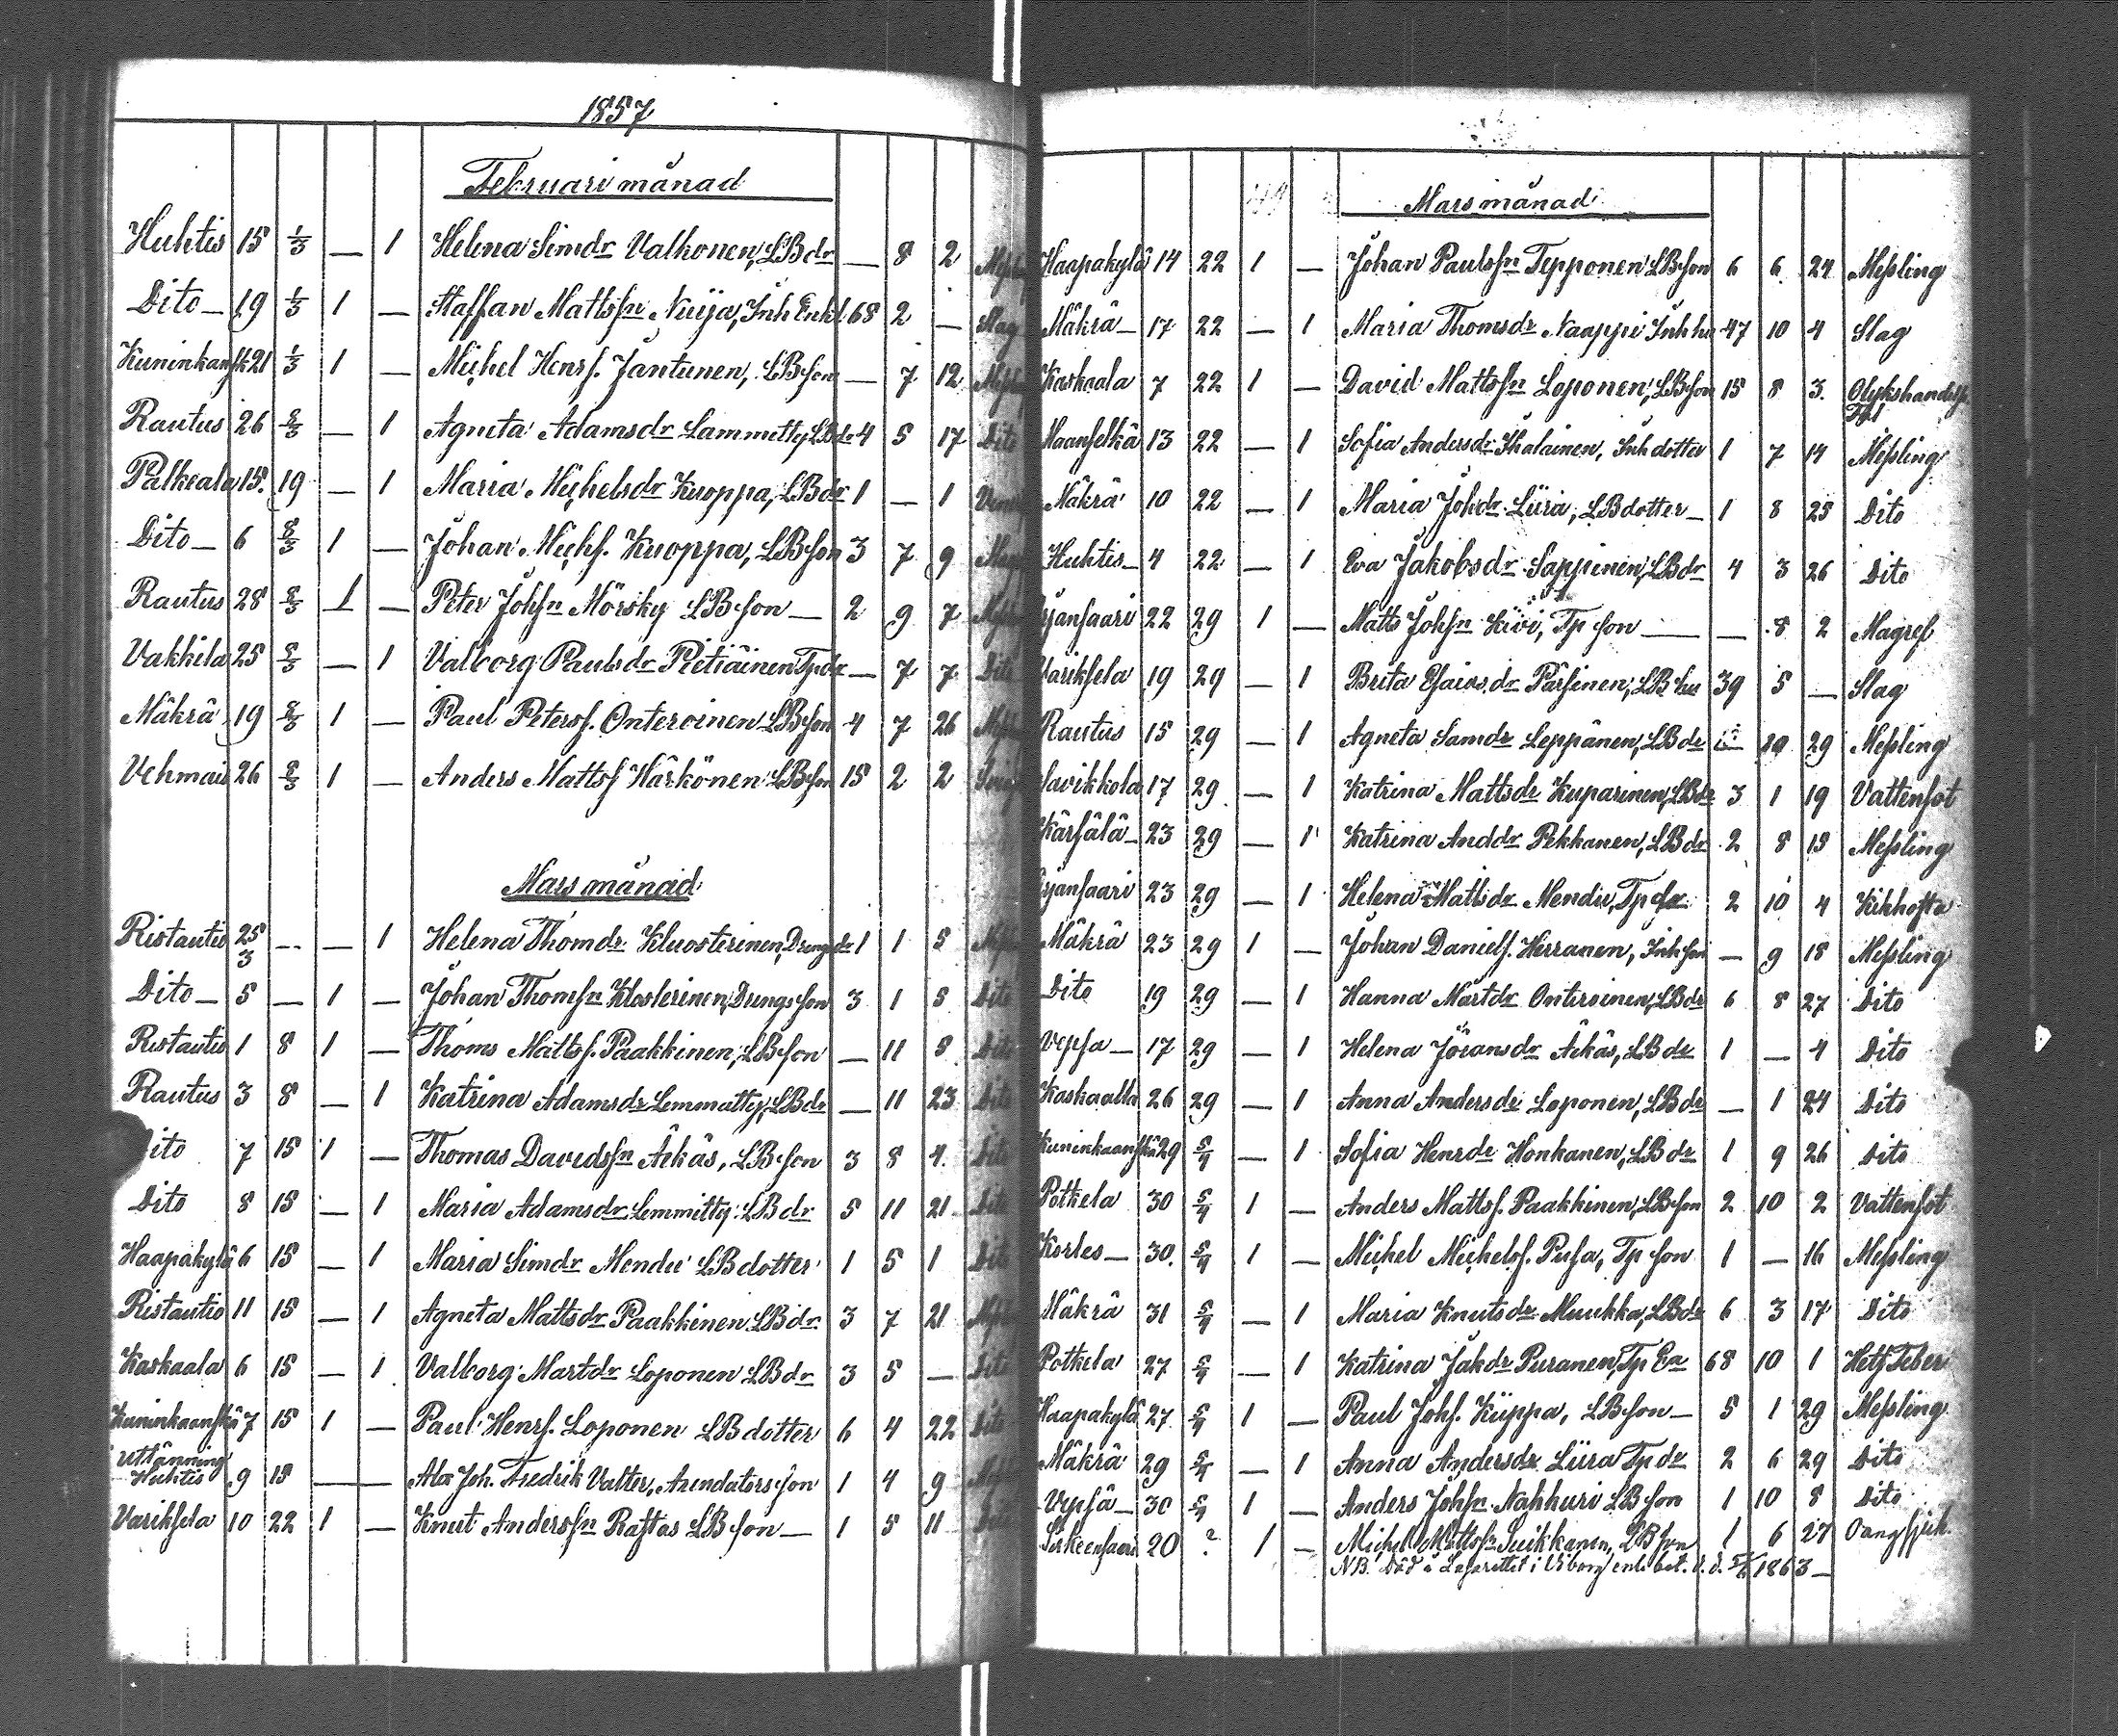 1857
Februari månad
Huhtis 15 1/3 — 1 Helena Simdr Valkonen, LBdr — 8 2
Dito — 19 1/3 1 — Staffan Mattssn Nuija, Inh Enkl 68 2 — Slag
Kuninkansk 21 1/3 1 — Michel Henrs. Jantunen, LBson — 7 12
Rautus 26 8/3 — 1 Agneta Adamsdr Lammetty LBdr 4 5 17 Dito
Palkeala 15. 19 — 1 Maria Michelsdr Kuoppa, LBdr 1 — 1
Dito — 6 8/3 1 — Johan Michs. Kuoppa, LBson 3 7 9
Rautus 28 8/3 1 — Peter Johsn Mörsky LBson — 2 9 7
Vakkila 25 8/3 — 1 Valborg Paulsdr Pietiäinen Tpdr — 7 7 Dito
Mäkrä 19 8/3 1 — Paul Peterss. Onteroinen LBson 4 7 26
Vehmais 26 8/3 1 — Anders Mattss Härkönen LBson 15 2 2
Mars månad
Ristautio 25 3 — — 1 Helena Thomdr Kluosterinen, Drengsdr 1 1 5
Dito — 5 — 1 — Johan Thomssn Klosterinen, Drengsson 3 1 5 Dito
Ristautio 1 8 1 — Thoms Mattss. Paakkinen, LBson — 11 8 Dito
Rautus 3 8 — 1 Katrina Adamsdr Lemmitty, LBdr — 11 23 Dito
Dito 7 15 1 — Thomas Davidssn Äikäs, LBson 3 8 4. Dito
Dito 8 15 — 1 Maria Adamsdr Lemmitty LBdr 5 11 21 Dito
Haapakylä 6 15 — 1 Maria Simdr Mendu LBdotter 1 5 1 Dito
Ristautio 11 15 — 1 Agneta Mattsdr Paakkinen LBdr 3 7 21
Kaskaala 6 15 — 1 Valborg Martdr Loponen LBdr 3 5 — Dito
Kuninkaanskä 7 15 1 — Paul Henrs. Loponen LBdotter 6 4 22 Dito
Utlänning
Huhtis 9 15 — — Alex Joh. Fredrik Valter, Arendatorsson 1 4 9
Variksela 10 22 1 — Knut Anderssn Rastas LBson — 1 5 11 Dito
Mars månad
Haapakylä 14 22 1 — Johan Paulssn Tepponen LBson 6 6 24 Messling
Mäkrä — 17 22 — 1 Maria Thomsdr Naappi Inh hu 47 10 4 Slag
Kaskaala 7 22 1 — David Mattssn Loponen, LBson 15 8 3. Olykshändelse
Haanselkä 13 22 — 1 Sofia Andersdr Ihalainen, Inhdotter 1 7 14 Messling
Mäkrä 10 22 — 1 Maria Johdr Liira, LBdotter — 1 8 25 Dito
Huhtis — 4 22 — 1 Eva Jakobsdr Sappinen, LBdr 4 3 26 Dito
Orjansaari 22 29 1 — Matts Johsn Kivi, Tp son — — 8 2 Magref
Variksela 19 29 — 1 Brita Esaiasdr Pärsinen, LB hu 39 5 — Slag
Rautus 15 29 — 1 Agneta Samdr Leppänen, LBdr 29 Messling
Savikkola 17 29 — 1 Katrina Mattsdr Kuparinen, LBdr 3 1 19 Vattensot
Kärsälä — 23 29 — 1 Katrina Anddr Pekkanen, LBdr 2 8 15 Messling
Orjansaari 23 29 — 1 Helena Mattsdr Mendu, Tpdr 2 10 4 Kikhosta
Mäkrä 23 29 1 — Johan Daniels. Herranen, Inhson — 9 18 Messling
Dito 19 29 — 1 Hanna Martdr Onteroinen, LBdr 6 8 27 Dito
Vepsa — 17 29 — 1 Helena Jöransdr Äikäs, LBdr 1 — 4 Dito
Kaskaala 26 29 — 1 Anna Andersdr Loponen, LBdr — 1 24 Dito
Kuninkaanskä 29 5/4 — 1 Sofia Henrdr Honkanen, LBdr 1 9 26 Dito
Potkela 30 5/4 1 — Anders Mattss. Paakkinen, LBson 2 10 2 Vattensot
Korles — 30. 5/4 1 — Michel Michelss. Pusa, Tp son 1 — 16 Messling
Mäkrä 31 5/4 — 1 Maria Knutsdr Muukka, LBdr 6 3 17 Dito
Potkela 27 5/4 — 1 Katrina Jakdr Puranen, Tp Ea 68 10 1 Hets. Feber
Haapakylä 27 5/4 1 — Paul Johs. Kiippa, LBson — 5 1 29 Messling
Mäkrä 29 5/4 — 1 Anna Andersdr Liira Tpdr 2 6 29 Dito
Vepsä — 30 5/4 1 — Anders Johsn Nahkuri LBson 1 10 8 Dito
Sirkeensaari 20 ? 1 — Michel Mattssn Suikkanen, LBson 1 6 27
NB. Död å Lasarettet i Viborg enl. bet. d. d. 5/6 1863 —